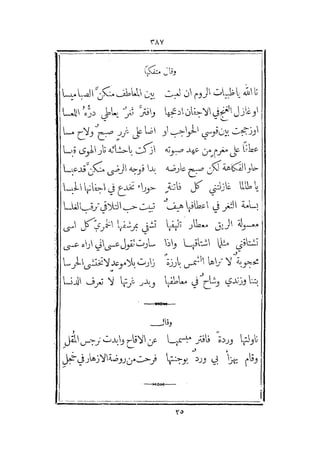 ٣٨٧
وقال متفكهاً
تاالله ياظبيات الروم ان لعبت بين المعاطف منكن الصبا ميسا
او غازل الغنج في الاجفان ادعجها وافتر ثغر يعاطي درُّه اللعسا
اوزججت بين قوسي الحواجب او اضا على غرر صبح ولاح مسا
عطفاً على مغرم من عهد صبوته ازكت باحشائه نار الهوى قبسا
حلو الفكاهة لكن صبح عارضه بدا فوجه الرضى منكن قد عبسا
ياطالما غازلتني كل فاتنة حوراء تخدع في اجفانها الحبسا
بسامة الثغر في اعطافها هيف تبيت حب التلاقي ترقب الغلسا
معسولة الريق معطار تأليفها تشفي بمرشفها الخمري كل اسى
تشتاقني مثلما اشتاقها واذا سارت تقول عسى اني اراه عسى
محجوبة لا تراها الشمس بارزة زارت بلا موعد لا تختشى الحرسا
بتنا وزندي وشاح في معاطفها وبدر غرتها لا تعرف الدنسا
وقال
ناولتها وردة فافتر مبسمها عن الاقاح وابدت نرجس المقل
وقام يهزأ بي ورد بوجنتها فرحت من روضة الازهار في خجل
٢٥